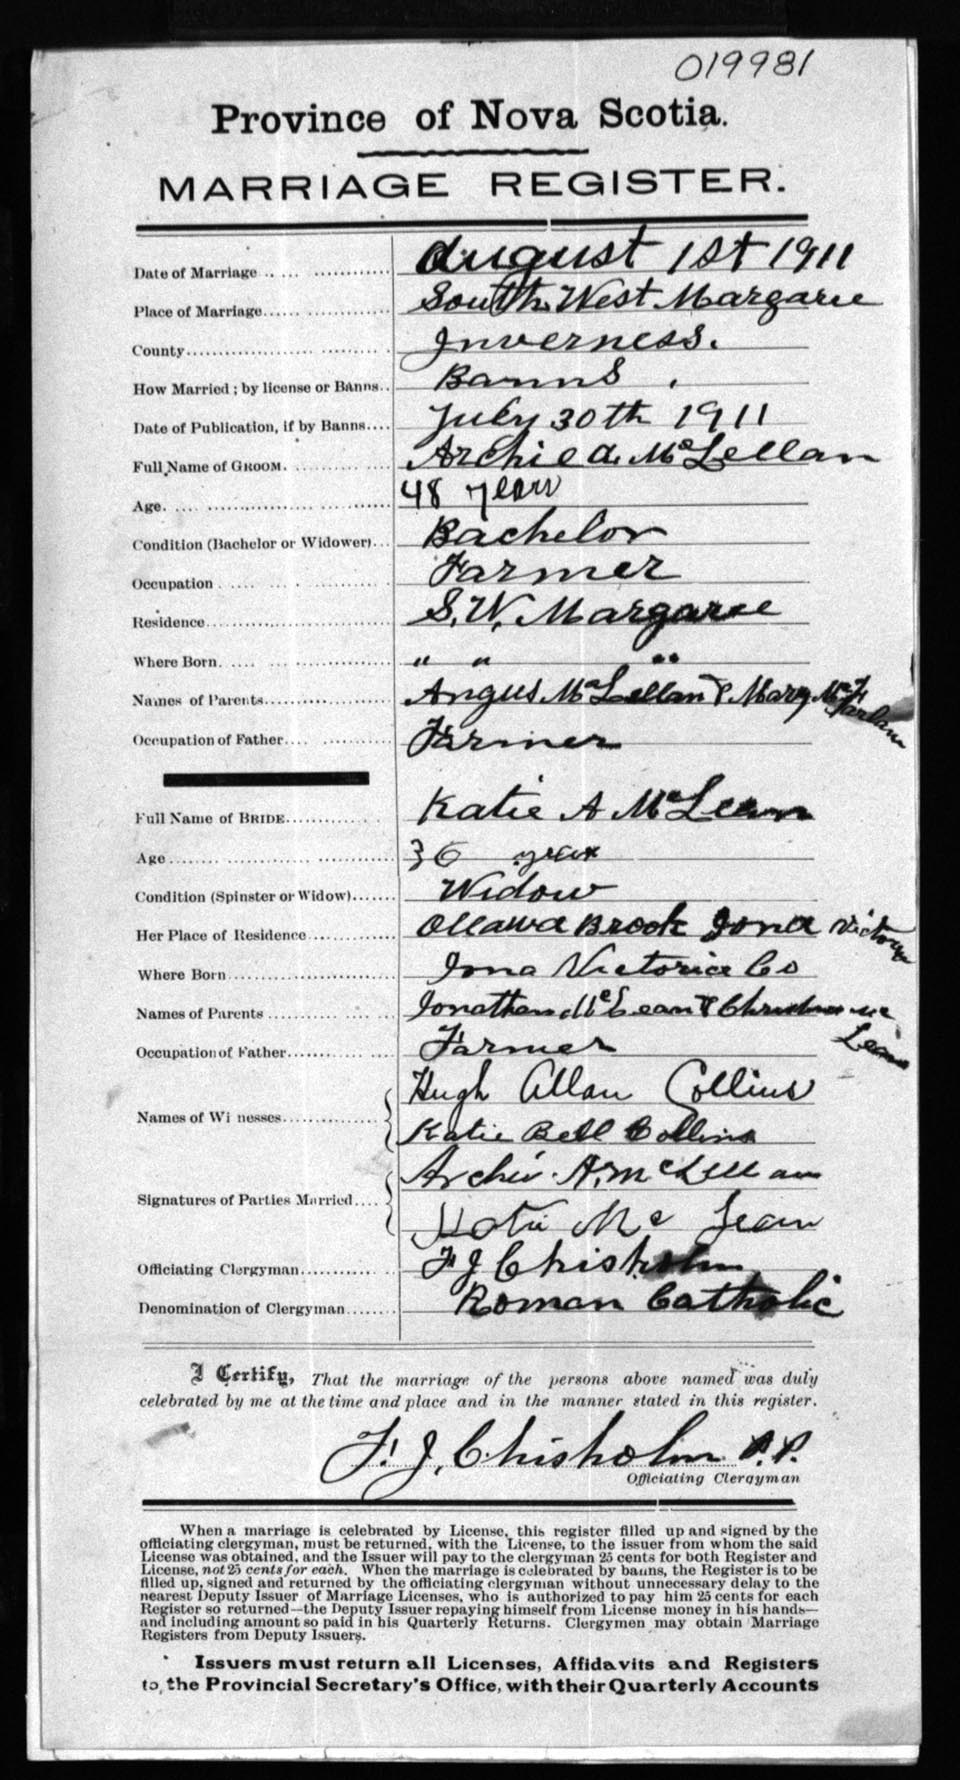 019981
Province of Nova Scotia.
MARRIAGE REGISTER.
Date of Marriage August 1st 1911
Place of Marriage South West Margaree
County Inverness.
How Married; by license or Banns Banns.
Date of Publication, if by Banns July 30th 1911
Full Name of GROOM. Archie A. McLellan
Age 48 years
Condition (Bachelor or Widower) Bachelor
Occupation Farmer
Residence S. W. Margaree
Where Born " " "
Names of Parents Angus McLellan & Mary McFarlane
Occupation of Father Farmer
Full Name of BRIDE Katie A McLean
Age 36 years
Condition (Spinster or Widow) Widow
Her Place of Residence Ottawa Brook Iona Victoria
Where Born Iona Victoria Co
Names of Parents Jonathan McLean & Mc Lean
Occupation of Father Farmer
Names of Wi nesses Hugh Allan Collins
Katie Bell Collins
Signatures of Parties Married Archie A. McLellan
Katie Mc Lean
Officiating Clergyman F J Chisholm
Denomination of Clergyman Roman Catholic
I Certify, That the marriage of the persons above named was duly
celebrated by me at the time and place and in the manner stated in this register.
F. J. Chisholm P.P.
Officiating Clergyman
When a marriage is celebrated by License, this register filled up and signed by the
officiating clergyman, must be returned, with the License, to the issuer from whom the said
License was obtained, and the Issuer will pay to the clergyman 25 cents for both Register and
License, not 25 cents for each. When the marriage is celebrated by banns, the Register is to be
filled up, signed and returned by the officiating clergyman without unnecessary delay to the
nearest Deputy Issuer of Marriage Licenses, who is authorized to pay him 25 cents for each
Register so returned—the Deputy Issuer repaying himself from License money in his hands—
and including amount so paid in his Quarterly Returns. Clergymen may obtain Marriage
Registers from Deputy Issuers.
Issuers must return all Licenses, Affidavits and Registers
to the Provincial Secretary's Office, with their Quarterly Accounts